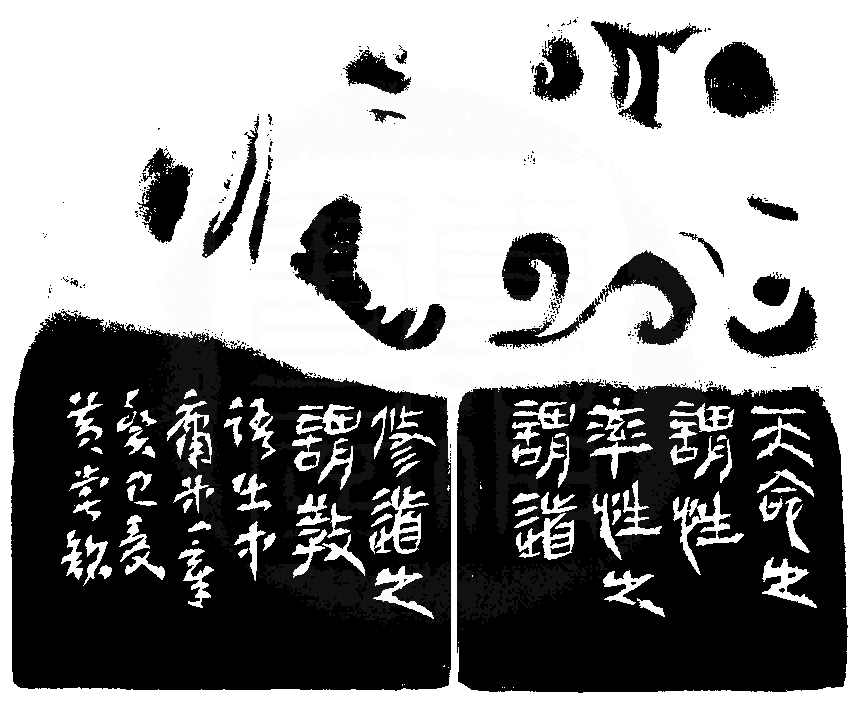 天命之
謂性
率性之
謂道
修道之
謂教
語出中
庸第一章
癸巳夏
黃